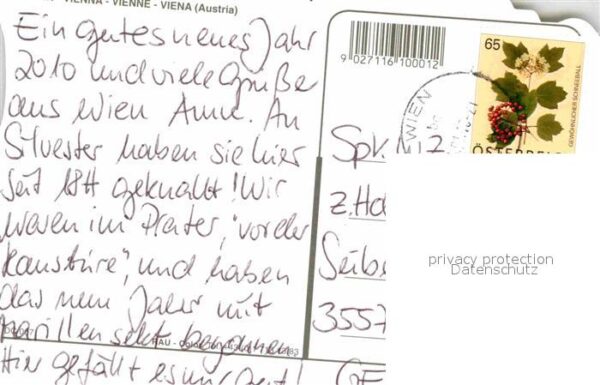 VIENNA - VIENNE - VIENA (Austria)
Ein gutes neues Jahr
2010 und viele Grüße
aus Wien Anne. An
Silvester haben sie hier
seit 18H geknallt! Wir
waren im Prater, "vor der
Haustüre", und haben
das neue Jahr mit
Marillensekt begonnen
Hier gefällt es mir gut!
9 027116 100012
65
GEWÖHNLICHER SCHNEEBALL
ÖSTERREICH
WIEN
z.Ha
Seibe
3557
privacy protection
Datenschutz